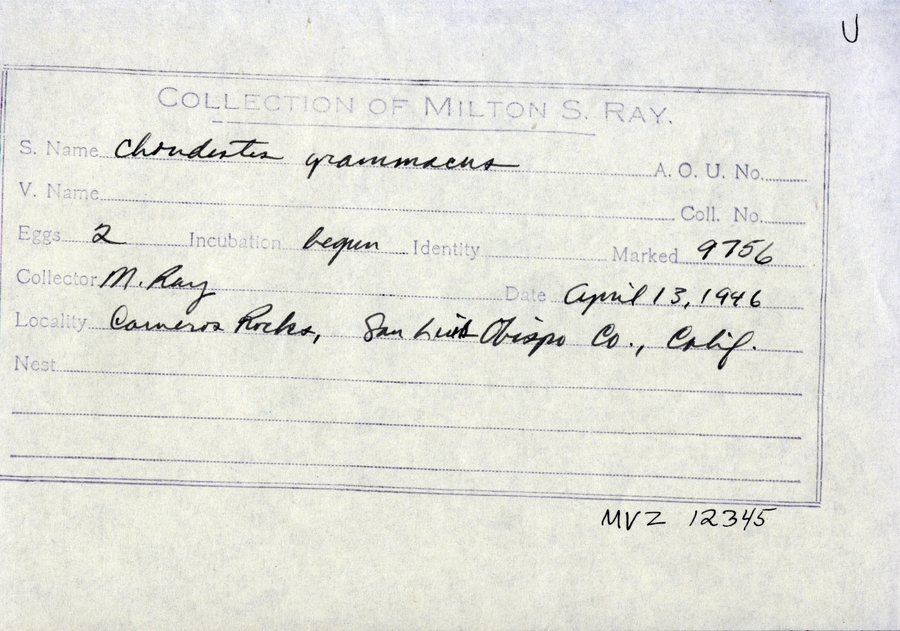 U
COLLECTION OF MILTON S. RAY.
S. Name Chondestes grammacus A. O. U. No.
V. Name Coll. No.
Eggs 2 Incubation begun Identity Marked 9756
Collector M. Ray Date April 13, 1946
Locality Cameros Rocks, San Luis Obispo Co., Calif.
Nest
MVZ 12345